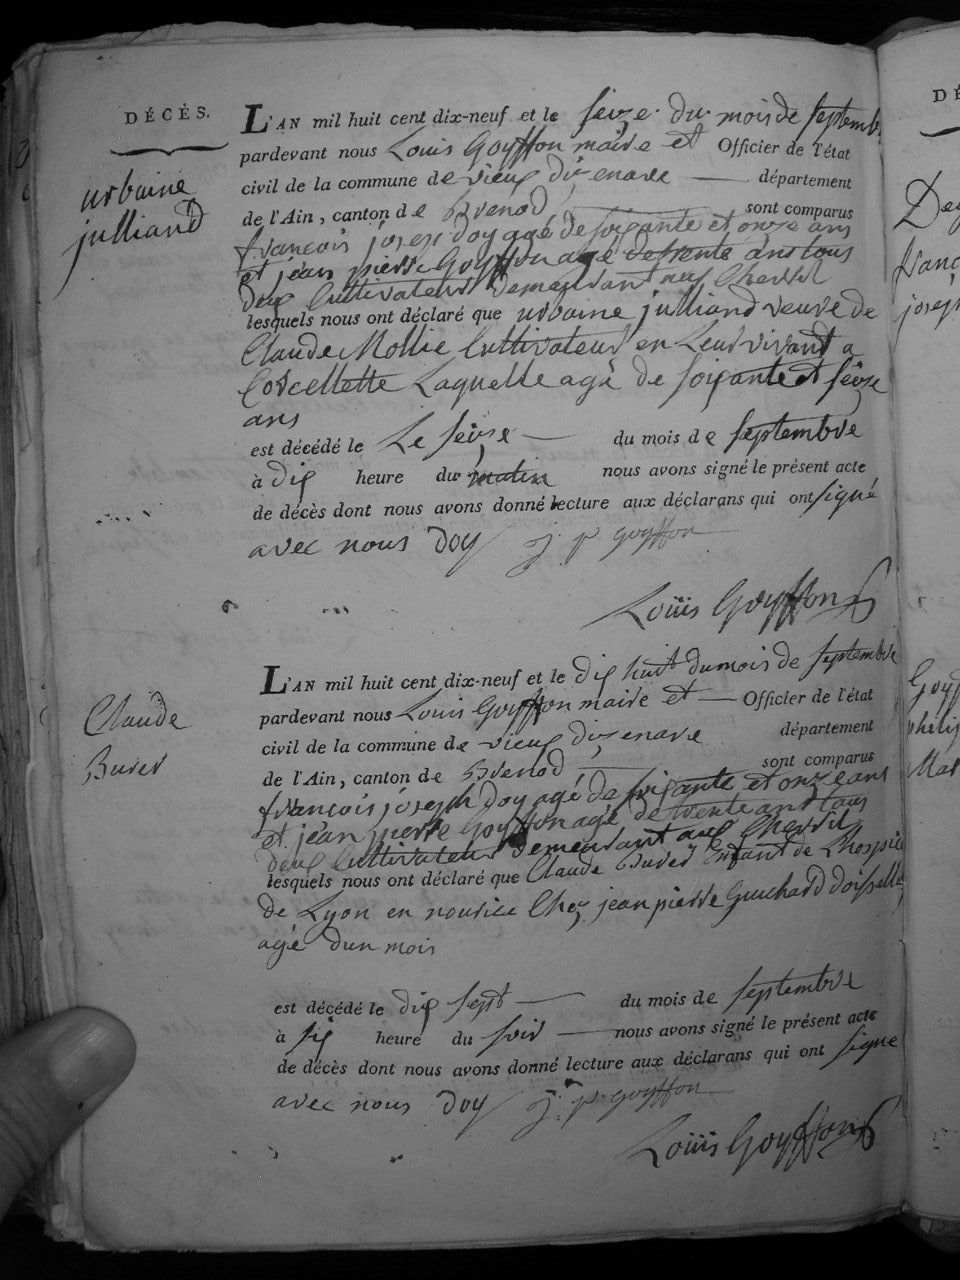 DÉCÈS.
urbaine
julliand
L'AN mil huit cent dix-neuf et le seize du mois de septembre
pardevant nous Louis Goyffon maire et Officier de l'état
civil de la commune de vieux dizenave département
de l'Ain, canton de Brenod, sont comparus
françois joseph doy agé de soixante et onze ans
et jean pierre Goyffon agé de trente ans tous
deux Cultivateurs demeurant aux Chevril
lesquels nous ont déclaré que urbaine julliand veuve de
Claude Mollie Cultivateur en Leur vivant a
Corcellette Laquelle agé de soixante et seize
ans
est décédé le Le seize du mois de septembre
à dix heure du matin nous avons signé le présent acte
de décès dont nous avons donné lecture aux déclarans qui ont signé
avec nous doy j. p goyffon
Louis Goyffon
Claude
Burer
L'AN mil huit cent dix-neuf et le dix huit du mois de septembre
pardevant nous Louis Goyffon maire et Officier de l'état
civil de la commune de vieux dizenave département
de l'Ain, canton de Brenod sont comparus
françois joseph doy agé de soixante et onze ans
et jean pierre Goyffon agé de trente ans tous
deux Cultivateurs demeurant aux Chevril
lesquels nous ont déclaré que Claude Burer Enfant de Lhospice
de Lyon en nourice Chez jean pierre Guichard doisselle
agé dun mois
est décédé le dix sept du mois de septembre
à six heure du soir nous avons signé le présent acte
de décès dont nous avons donné lecture aux déclarans qui ont signe
avec nous doy j. p. goyffon
Louis Goyffon